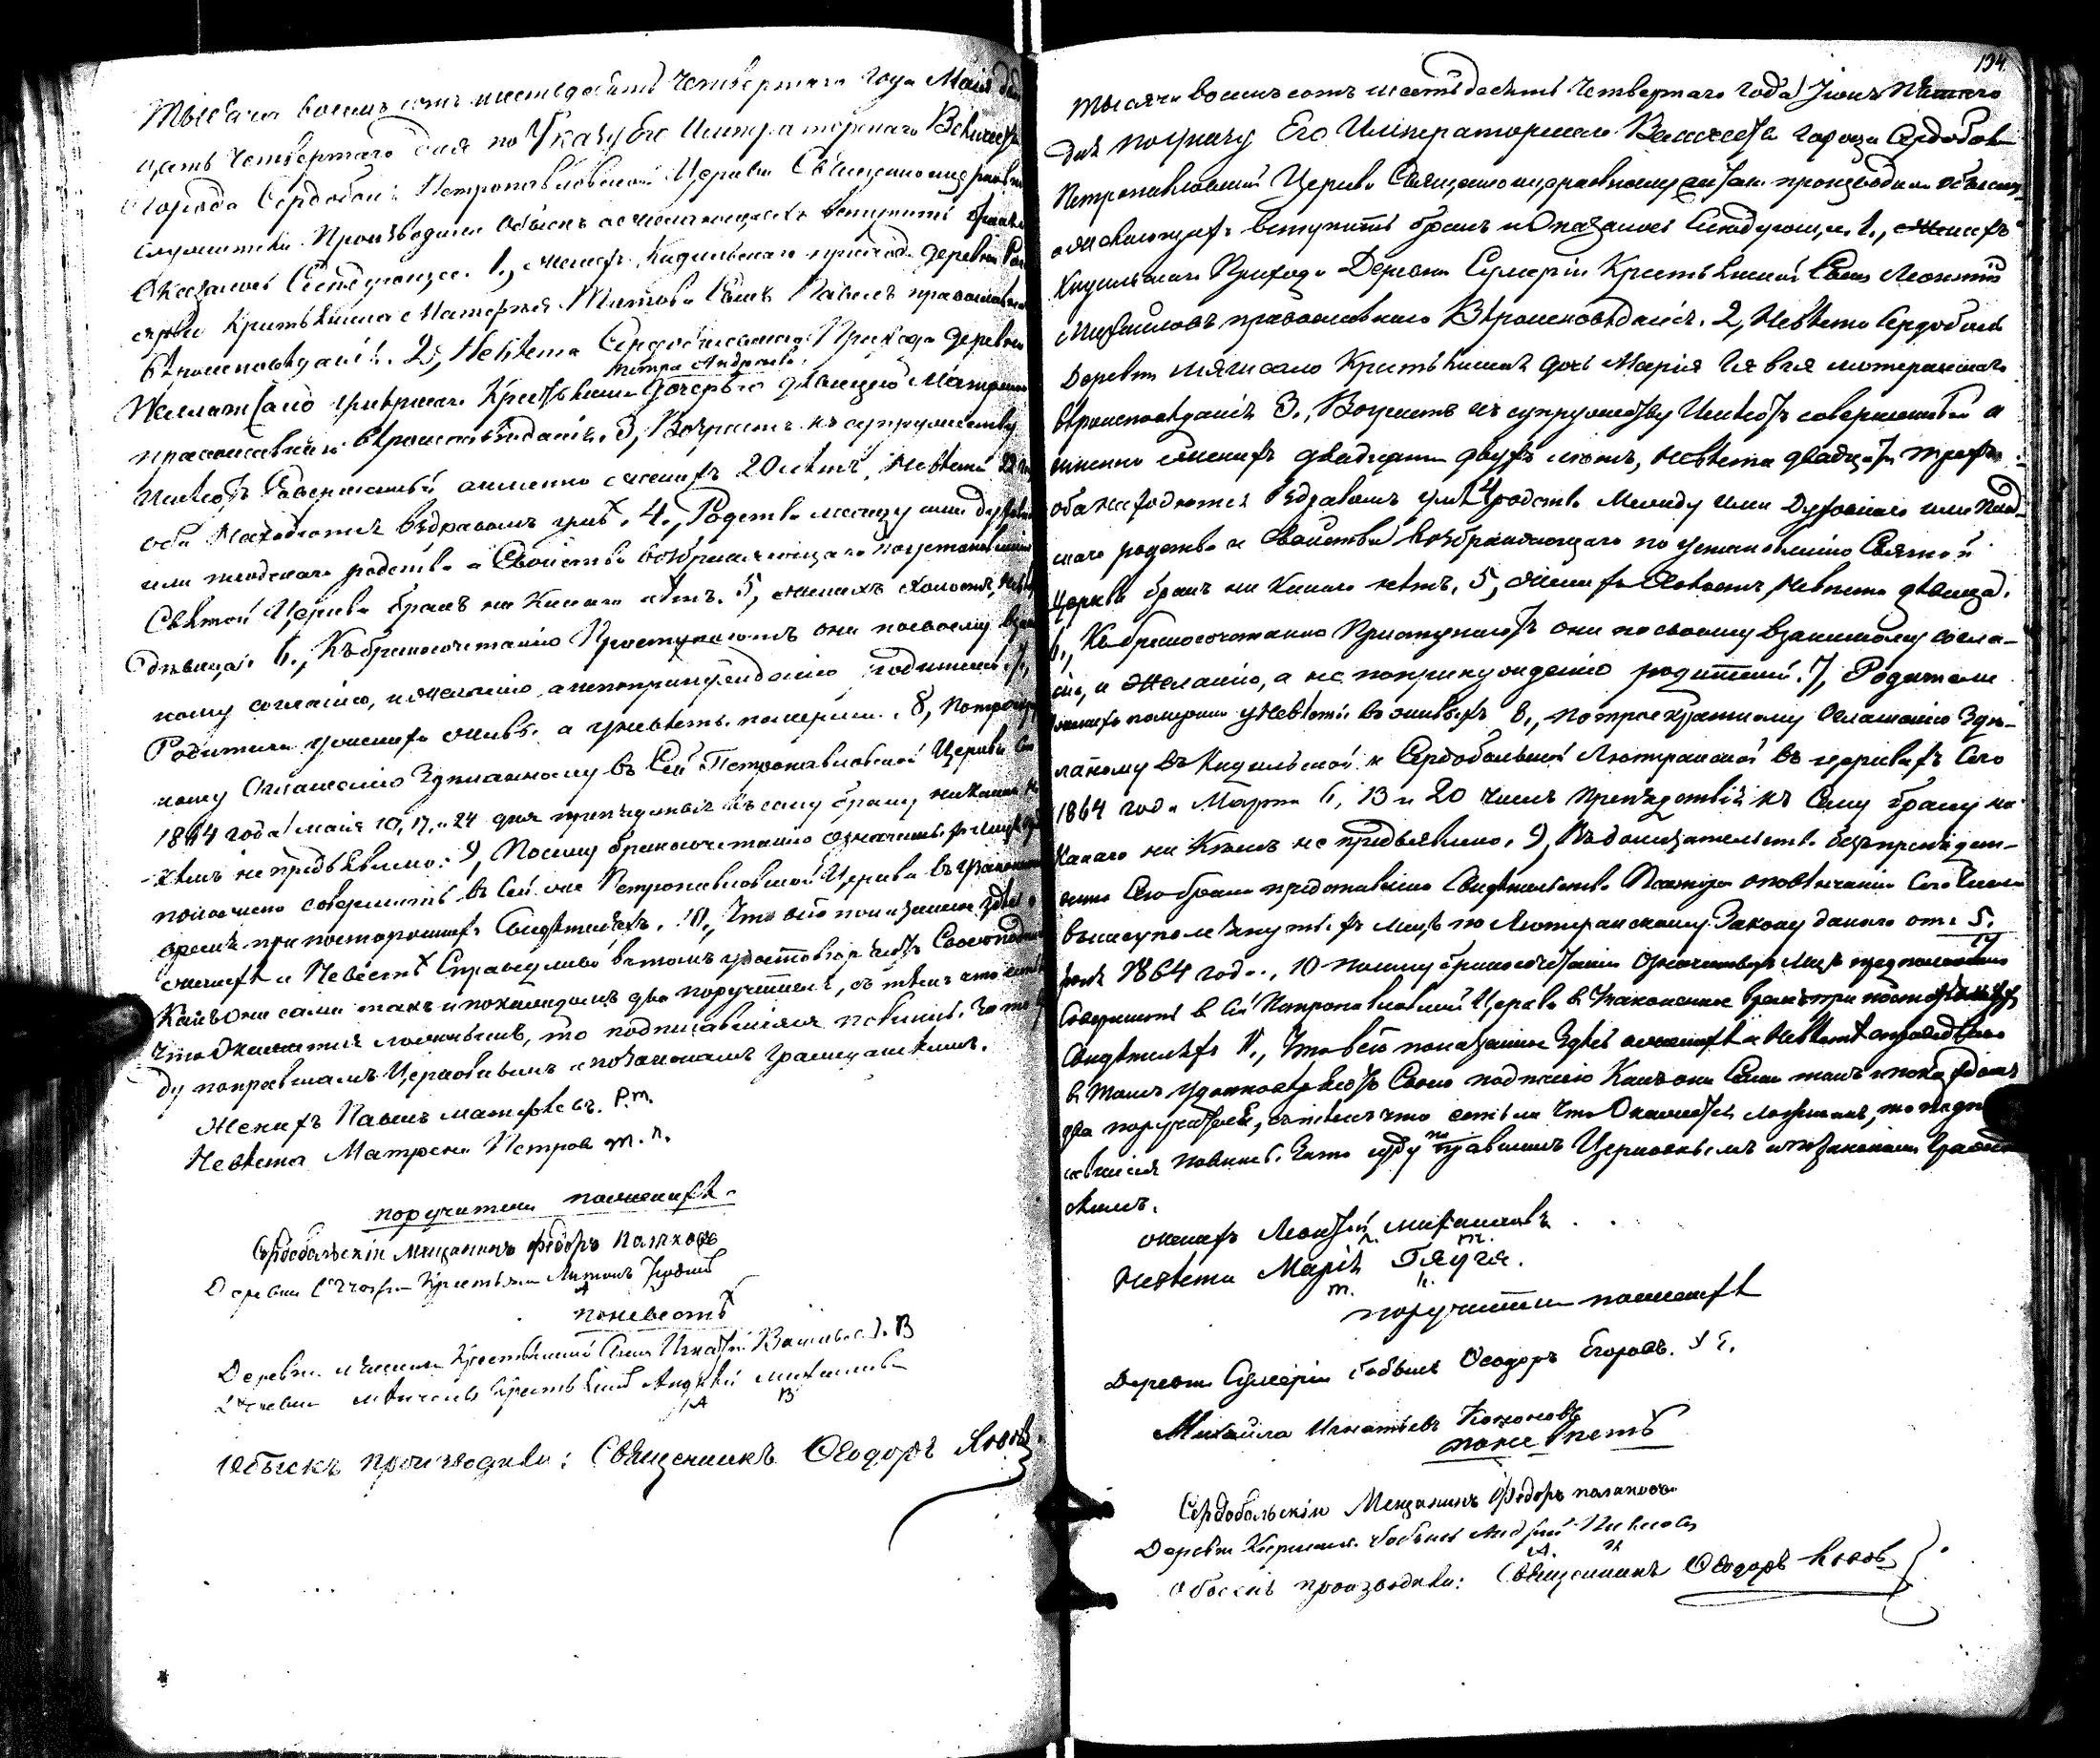 Тысяча восемь сотъ шестьдесятъ четвертаго года Маія два
цать четвертаго дня по Указу Его Императорскаго Величества
города Сердоболя Петропавловской Церкви Священноцерковно
служители производили обыскъ о желающихъ вступить бракъ
и оказалось следующее. 1, женихъ Кидильскаго прихода деревни
крестьянина Матфея Титова сынъ Павелъ православнаго
вѣроисповѣданія. 2, Невѣста Сердобольскаго Прихода деревни
Петра Андреева
крестьянина дочерью дѣвицею Матреною
православнаго вѣроисповѣданія. 3, Возрастъ къ супружеству
имѣютъ совершенный а именно женихъ 20 лѣтъ, невѣста 22
оба находются въ здравомъ умѣ. 4., Родства между ими духовнаго
или плодскаго родства и свойства возбраняющаго поустановленію
Святой Церкви бракъ ни какаго нѣтъ. 5, женихъ холостъ, невѣста
дѣвица. 6., Къ бракосочетанію Приступаютъ они посвоему взаим
ному согласію, и желанію, а непопринужденію родителей. 7,
Родители у жениха живы а у невѣсты померши. 8, По троекрат
ному Оглашенію Здѣланному въ Сей Петропавловской Церкви сего
1864 года маія 10, 17, и 24 дня препядствія къ сему браку никакаго ни
кѣмъ не предъявлено. 9, Посему бракосочетаніе означенныхъ лицъ пред
положено совершить въ сей же Петропавловской Церкви въ узаконенное
время при постороннихъ свидѣтеляхъ. 10, Что всіо показанное здѣсь о
женихѣ и Невестѣ Справедливо въ томъ удостовѣряютъ Своею подписью
Какъ они сами такъ и покаждомъ два поручителя, съ тѣмъ что естьли
что Окажется ложнымъ, то подписавшіеся повинны. Зато су
ду поправиламъ Церковнымъ и позаконамъ гражданскимъ.
Женихъ Павелъ матфѣевъ. Р.т.
Невѣста Матрена Петрова т. п.
поручители пожениху.
Сердобольскіи Мещанинъ Фѳдоръ палаховъ
Деревни крестьянинъ Антонъ
поневестѣ
Деревни крестьянскій сынъ Игнатій Васильевъ. І. В
Деревни крестьянинъ Андрей михаиловъ
А В
Обыскъ производилъ: Священникъ Ѳеодоръ
194.
Тысяча восемь сотъ шестьдесятъ четвертаго года Іюня Пятаго
дня по Указу Его Императорскаго Величества города Сердоболя
Петропавловской Церкви Священноцерковнослужители производили обыскъ
о желающихъ вступить бракъ и Оказалось Слѣдующее. 1., Женихъ
Кидильскаго Прихода Деревни Сумеріи Крестьянской Сынъ Леонтій
Михаиловъ православнаго Вѣроисповѣданія. 2, Невѣста Сердобольской
Деревни Крестьянская дочь Марія лютеранскаго
вѣроисповѣданія 3., Возрастъ къ супружеству Имѣютъ совершенный а
именно женихъ двадцати двухъ лѣтъ, невѣста двадцати трехъ
оба находются въ здравомъ умѣ 4 родства Между ими Духовнаго или Плод
скаго родства и свойства возбраняющаго по установленію Святой
Церкви бракъ ни Какаго нѣтъ, 5, женихъ холостъ, невѣста дѣвица.
6, Къ бракосочетанію Приступаютъ они по своему взаимному согла-
сію, и Желанію, а не попринужденію родителей. 7, Родители
жениха померши у невѣсты въ живыхъ 8., по троекратному Оглашенію Здѣ-
ланому въ Кидильской и Сердобольской Лютранской въ церквахъ Сего
1864 года Марта 6, 13 и 20 чиселъ препядствія къ сему браку ни
Какаго ни Кѣмъ не предъявлено. 9, Въ доказательство безпрепядст-
венно Сего брака предоставлено Свидѣтельство Пастора о повѣнчаніи
вышеупомянутыхъ лицъ по Лютеранскому Закону данаго отъ 5/17
Іюня 1864 года., 10 посему бракосочетаніе Означенныхъ Лицъ предположено
Совершить въ Сей Петропавловской Церкви въ Узаконенное время при постороннихъ
Свидѣтеляхъ 11., Что всіо показанное Здѣсь о женихѣ и Невѣстѣ справедливо
въ томъ удостовѣряютъ Своею подписью Какъ они Сами такъ и покаждомъ
два поручителя, съ тѣмъ что естьли что Окажется ложнымъ, то подпи
савшіеся повинны. Зато суду по правиламъ Церковнымъ и позаконамъ граждан
скимъ.
женихъ Леонтій михаиловъ
л. м.
Невѣста Марія
т. п.
поручители пожениху
Деревни Сумеріи бобыль Ѳеодоръ Егоровъ.
Михайла Игнатьевъ Кононовъ
поневѣстѣ
Сердобольскіи Мещанинъ Фѳдоръ палаховъ
Деревни бобыль Андрей
А.
Обыскъ производилъ: Священникъ Ѳеодоръ